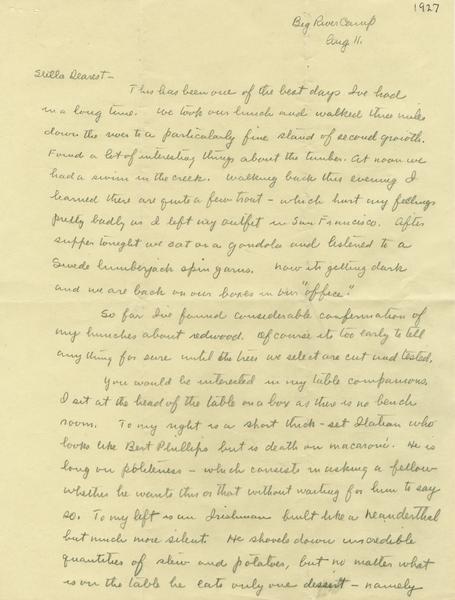 1927
Big River Camp
Aug 11.
Stella Dearest -
This has been one of the best days I've had
in a long time. We took our lunch and walked three miles
down the river to a particularly fine stand of second growth.
Found a lot of interesting things about the timber. At noon we
had a swim in the creek. Walking back this evening I
learned there are quite a few trout - which hurt my feelings
pretty badly as I left my outfit in San Francisco. After
supper tonight we sat on a gondola and listened to a
Swede lumberjack spin yarns. Now its getting dark
and we are back on our boxes in our "office".
So far I've found considerable confirmation of
my hunches about redwood. Of course its too early to tell
anything for sure until the trees we select are cut and tested.
You would be interested in my table companions.
I sit at the head of the table on a box as there is no bench
room. To my right is a short thick-set Italian who
looks like Bert Phillips but is death on macaroni. He is
long on politeness - which consists in asking a fellow
whether he wants this or that without waiting for him to say
so. To my left is an Irishman built like a Neanderthal
but much more silent. He shovels down incredible
quantities of stew and potatoes, but no matter what
is on the table he eats only one dessert - namely